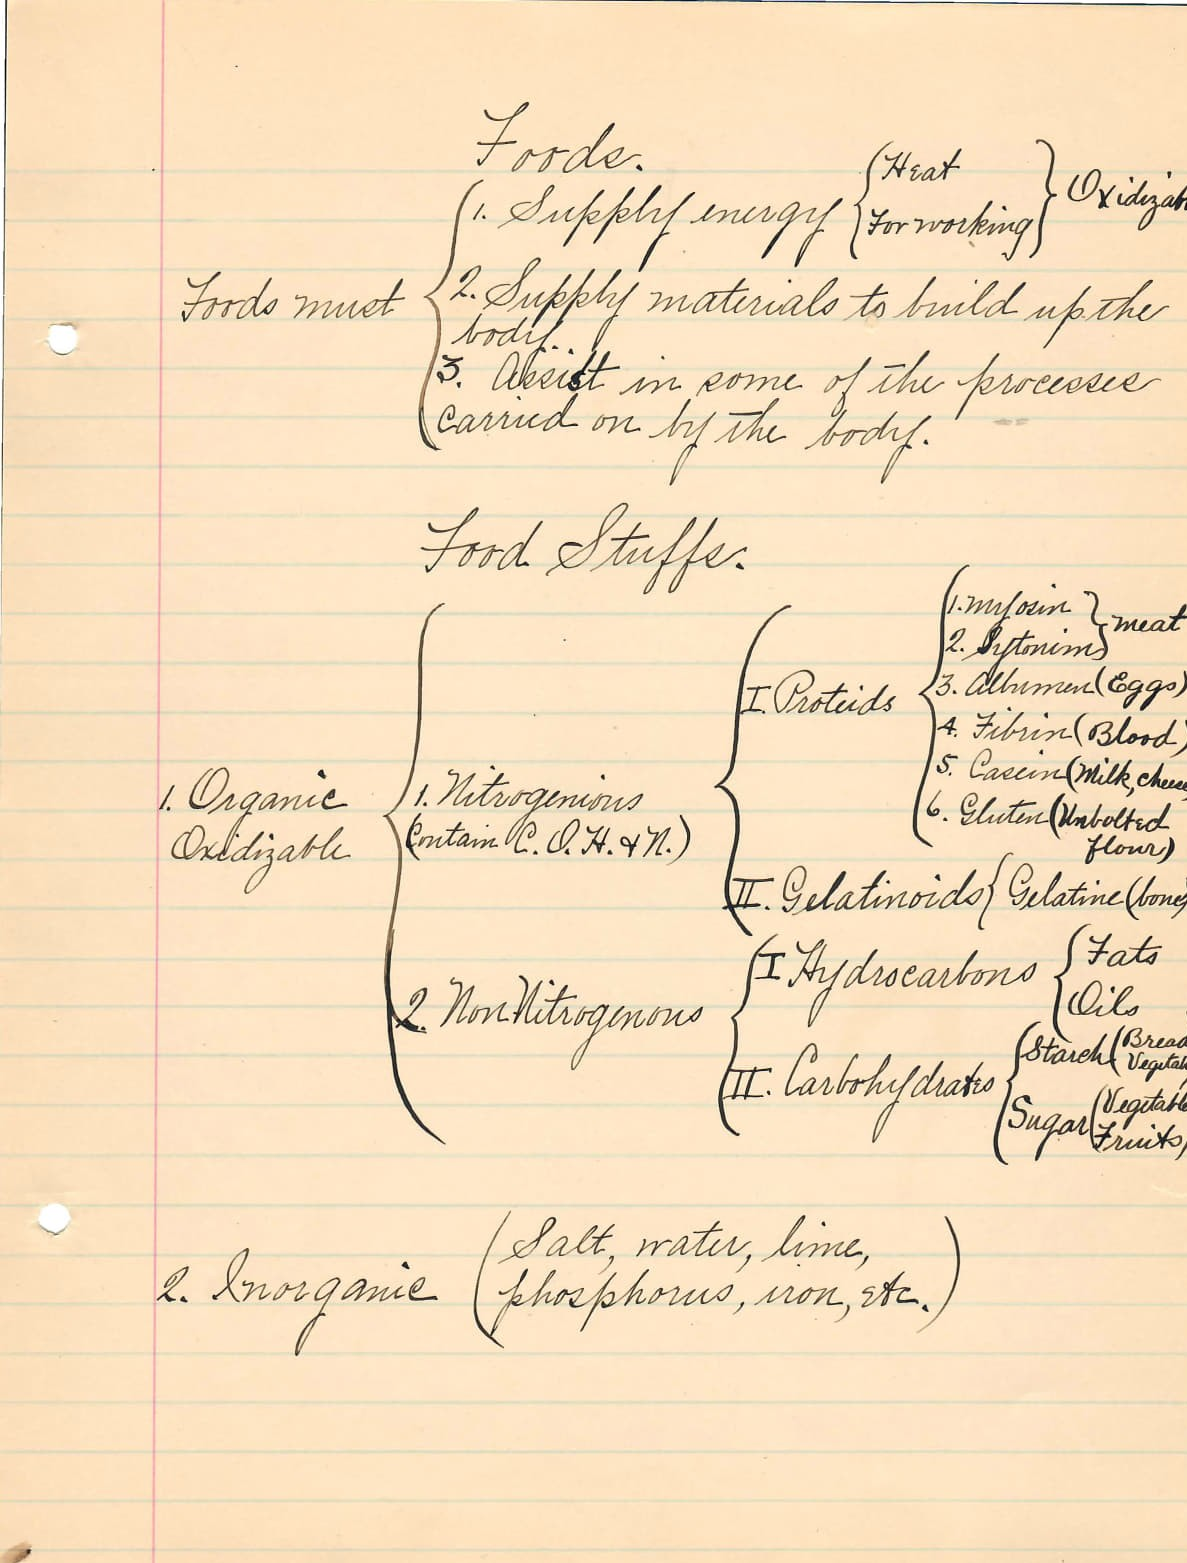 Foods.
Foods must
1. Supply energy
Heat
For working
Oxidizab
2. Supply materials to build up the
body.
3. Assist in some of the processes
carried on by the body.
Food Stuffs.
1. Organic
Oxidizable
1. Nitrogenious
(Contain C. O. H. & N.)
I. Proteids
1. Myosin
2. Sytonim
meat
3. Albumen (Eggs)
4. Fibrin (Blood)
5. Casein (Milk, cheese,
6. Gluten (Unbolted
flour)
II. Gelatinoids
Gelatine (bones
2. Non Nitrogenous
I Hydrocarbons
Fats
Oils
II. Carbohydrates
Starch (Bread
Vegetab
Sugar (Vegetable
Fruits)
2. Inorganic
(Salt, water, lime,
phosphorus, iron, etc.)